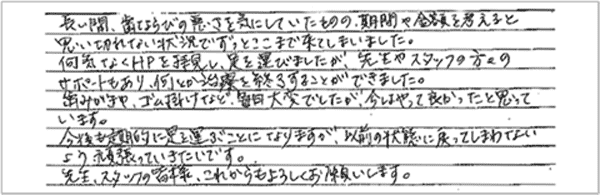 長い間、歯ならびの悪さを気にしていたものの、期間や金額を考えると
思い切れない状況でずっとここまで来てしまいました。
何気なくHPを拝見し、足を運びましたが、先生やスタッフの方々の
サポートもあり、何とか治療を終えることができました。
歯みがきや、ゴム掛けなど、毎日大変でしたが、今はやって良かったと思って
います。
今後も定期的に足を運ぶことになりますが、以前の状態に戻ってしまわない
よう頑張っていきたいです。
先生、スタッフの皆様、これからもよろしくお願いします。